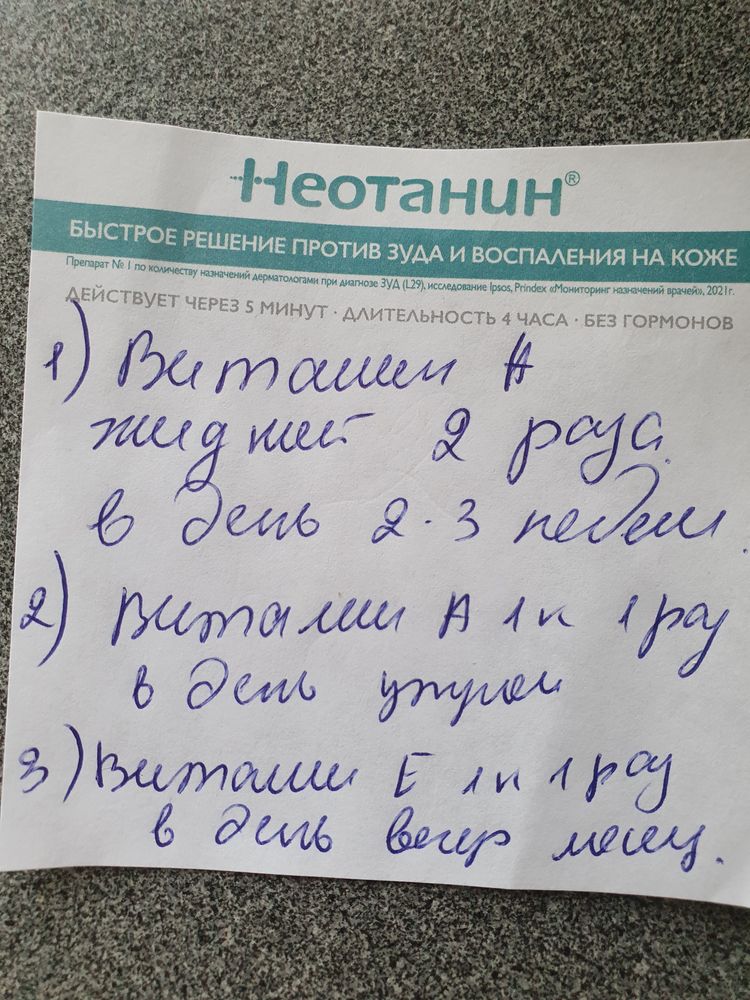 Неотанин®
БЫСТРОЕ РЕШЕНИЕ ПРОТИВ ЗУДА И ВОСПАЛЕНИЯ НА КОЖЕ
Препарат № 1 по количеству назначений дерматологами при диагнозе ЗУД (L29), исследование Ipsos, Prindex «Мониторинг назначений врачей», 2021г.
ДЕЙСТВУЕТ ЧЕРЕЗ 5 МИНУТ · ДЛИТЕЛЬНОСТЬ 4 ЧАСА · БЕЗ ГОРМОНОВ
1) Витамин А
жидкий 2 раза
в день 2-3 недели.
2) Витамин А 1 к 1 раз
в день утром
3) Витамин Е 1 к 1 раз
в день вечер месяц.